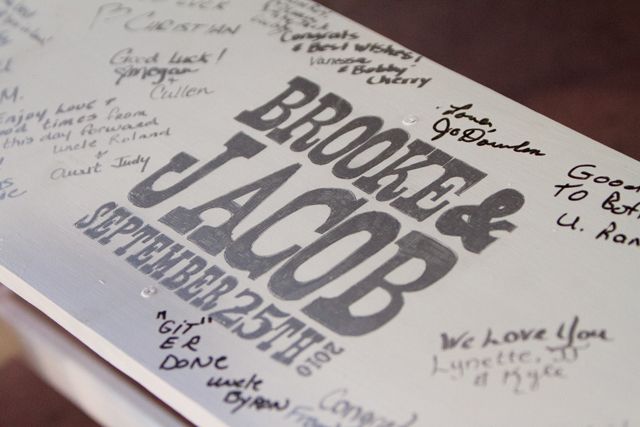 CHRISTIAN
Congrats
& Best Wishes!
Vanessa
& Bobby
Cherry
Good Luck!
Megan
+
Cullen
M.
Enjoy Love &
good times from
this day forward
uncle Roland
+
Aunt Judy
Love,
Jo Dowden
BROOKE &
JACOB
SEPTEMBER 25TH
2010
Good
TO
U. Ron
"GIT"
ER
DONE
uncle
BYRON
We Love You
Lynette, JJ
& Kyle
Congrad
From